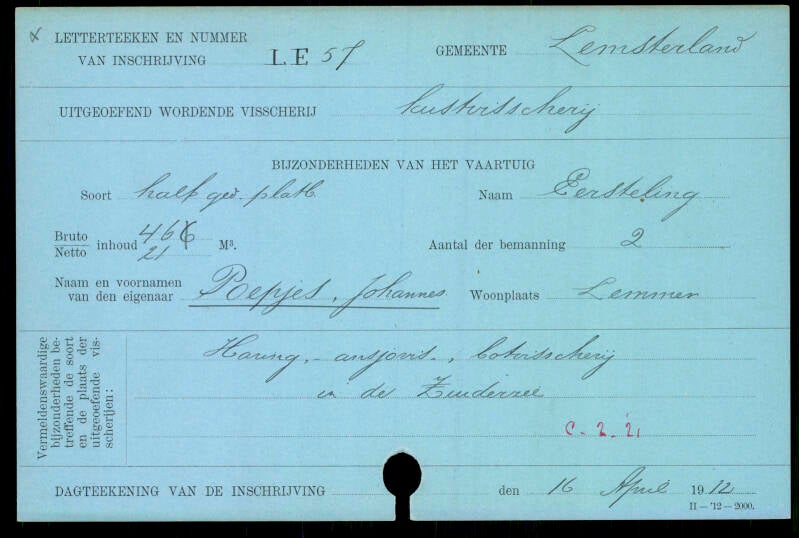 LETTERTEEKEN EN NUMMER
VAN INSCHRIJVING LE 57 GEMEENTE Lemsterland
UITGEOEFEND WORDENDE VISSCHERIJ kustvisscherij
BIJZONDERHEDEN VAN HET VAARTUIG
Soort half ged. platb. Naam Eersteling
Bruto inhoud M³. Aantal der bemanning 2
Netto 21
Naam en voornamen
van den eigenaar Repjes, Johannes Woonplaats Lemmer
Vermeldenswaardige
bijzonderheden be-
treffende de soort
en de plaats der
uitgeoefende vis-
scherijen:
Haring,- ansjovis-, botvisscherij
in de Zuiderzee
C. 2. 21
DAGTEEKENING VAN DE INSCHRIJVING den 16 April 1912
II—'12—2000.